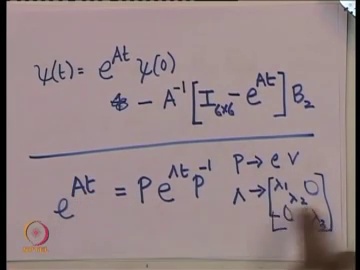 ψ(t) = e^{At} ψ(0)
- A^{-1} [I_{6x6} - e^{At}] B_2
e^{At} = P e^{Λt} P^{-1}
P → e v
Λ → [λ_1 0 λ_2 0 λ_3]
NPTEL